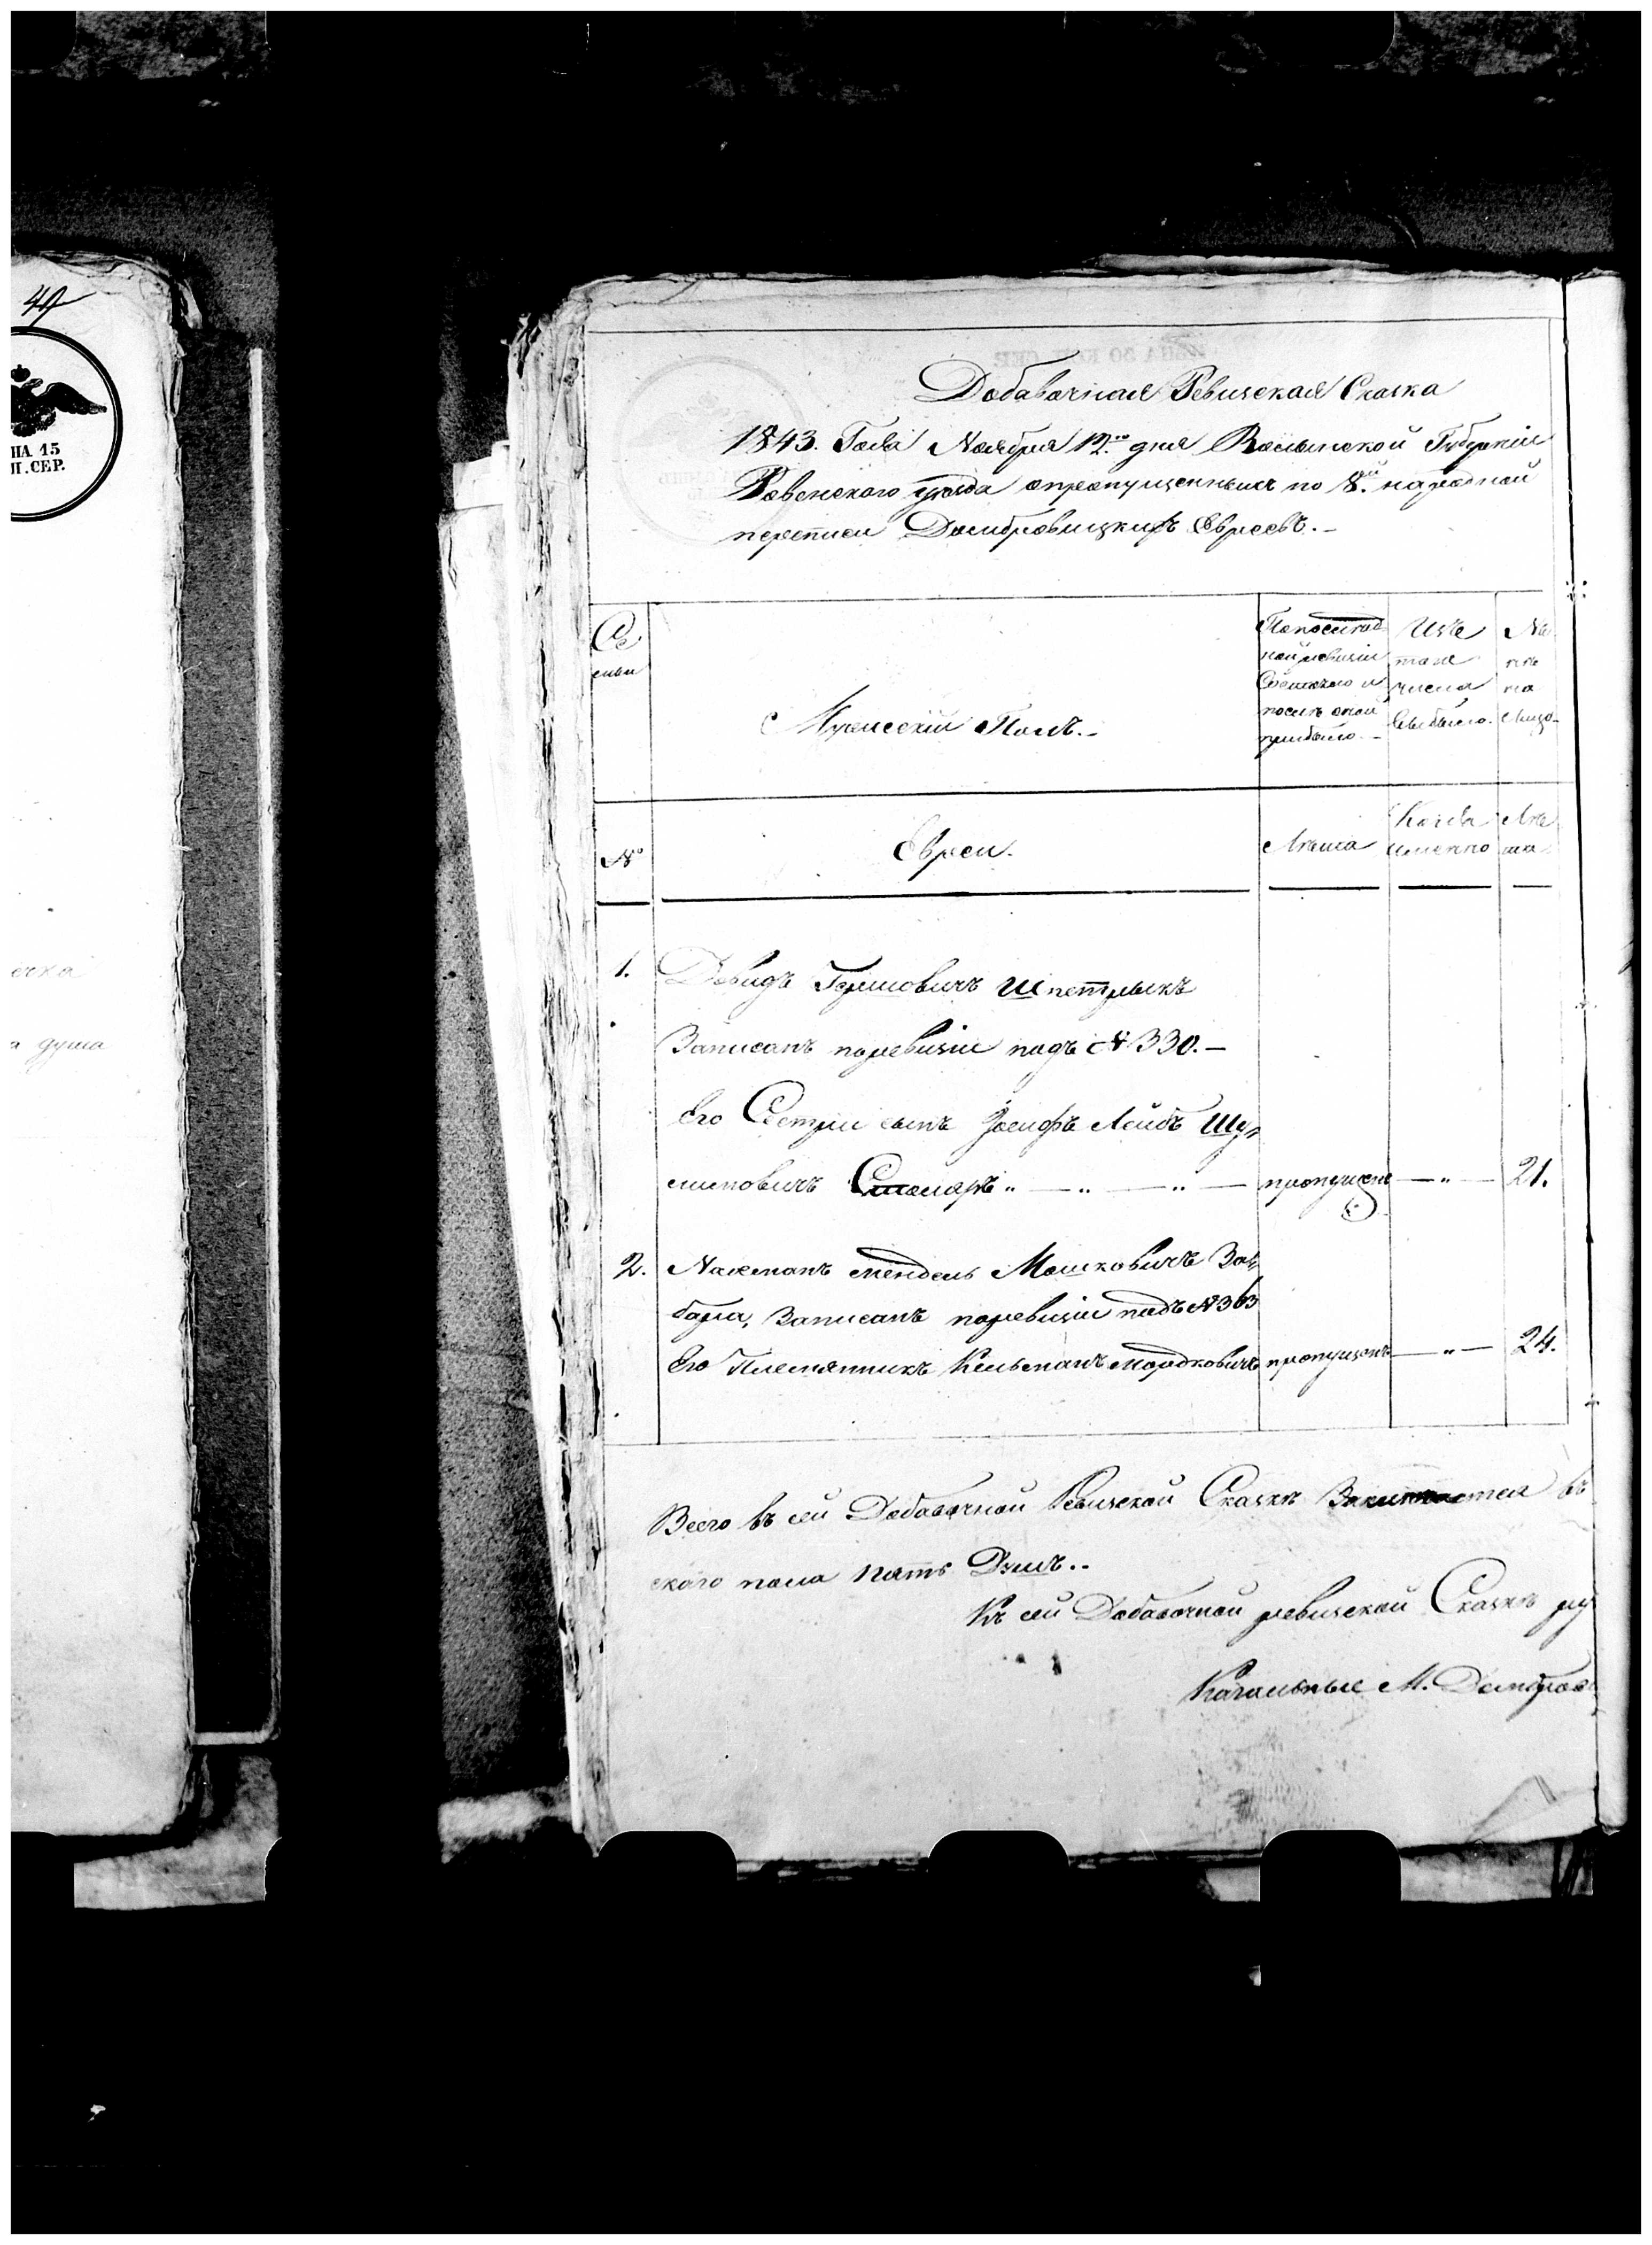 44
НА 15
П. СЕР.
ечка
а душа
Добавочная Ревизская Сказка
1843. Года Ноября 12.го дня Волынской Губерніи
Ровенского уезда о пропущенныхъ по 8.й народной
переписи Домбровицкихъ Евреевъ.-
Се
мьи
Мужескій Полъ.-
По послед
ней ревизіи
Состояло и
после оной
прибыло.-
Изъ
того
числа
выбыло.
Ны
не
на
лицо-
№
Евреи.
Лета
Когда
именно
Ле
та
1.
Довидъ Гершовичъ Шпетрыкъ
Записанъ по ревизіи подъ №330.-
Его Сестры сынъ Іосифъ Лейбъ Шу
лимовичъ Столяръ " — " — " —
пропущенъ
— " —
21.
2.
Мошковичъ
Записанъ по ревизіи подъ №363
Его Племянникъ Кельманъ Мордковичъ
пропущенъ
— " —
24.
Всего въ сей Добавочной Ревизской Сказке въ
ского пола пять Душъ..
Къ сей Добавочной ревизской Сказке ру
Кагальные М. Домбров